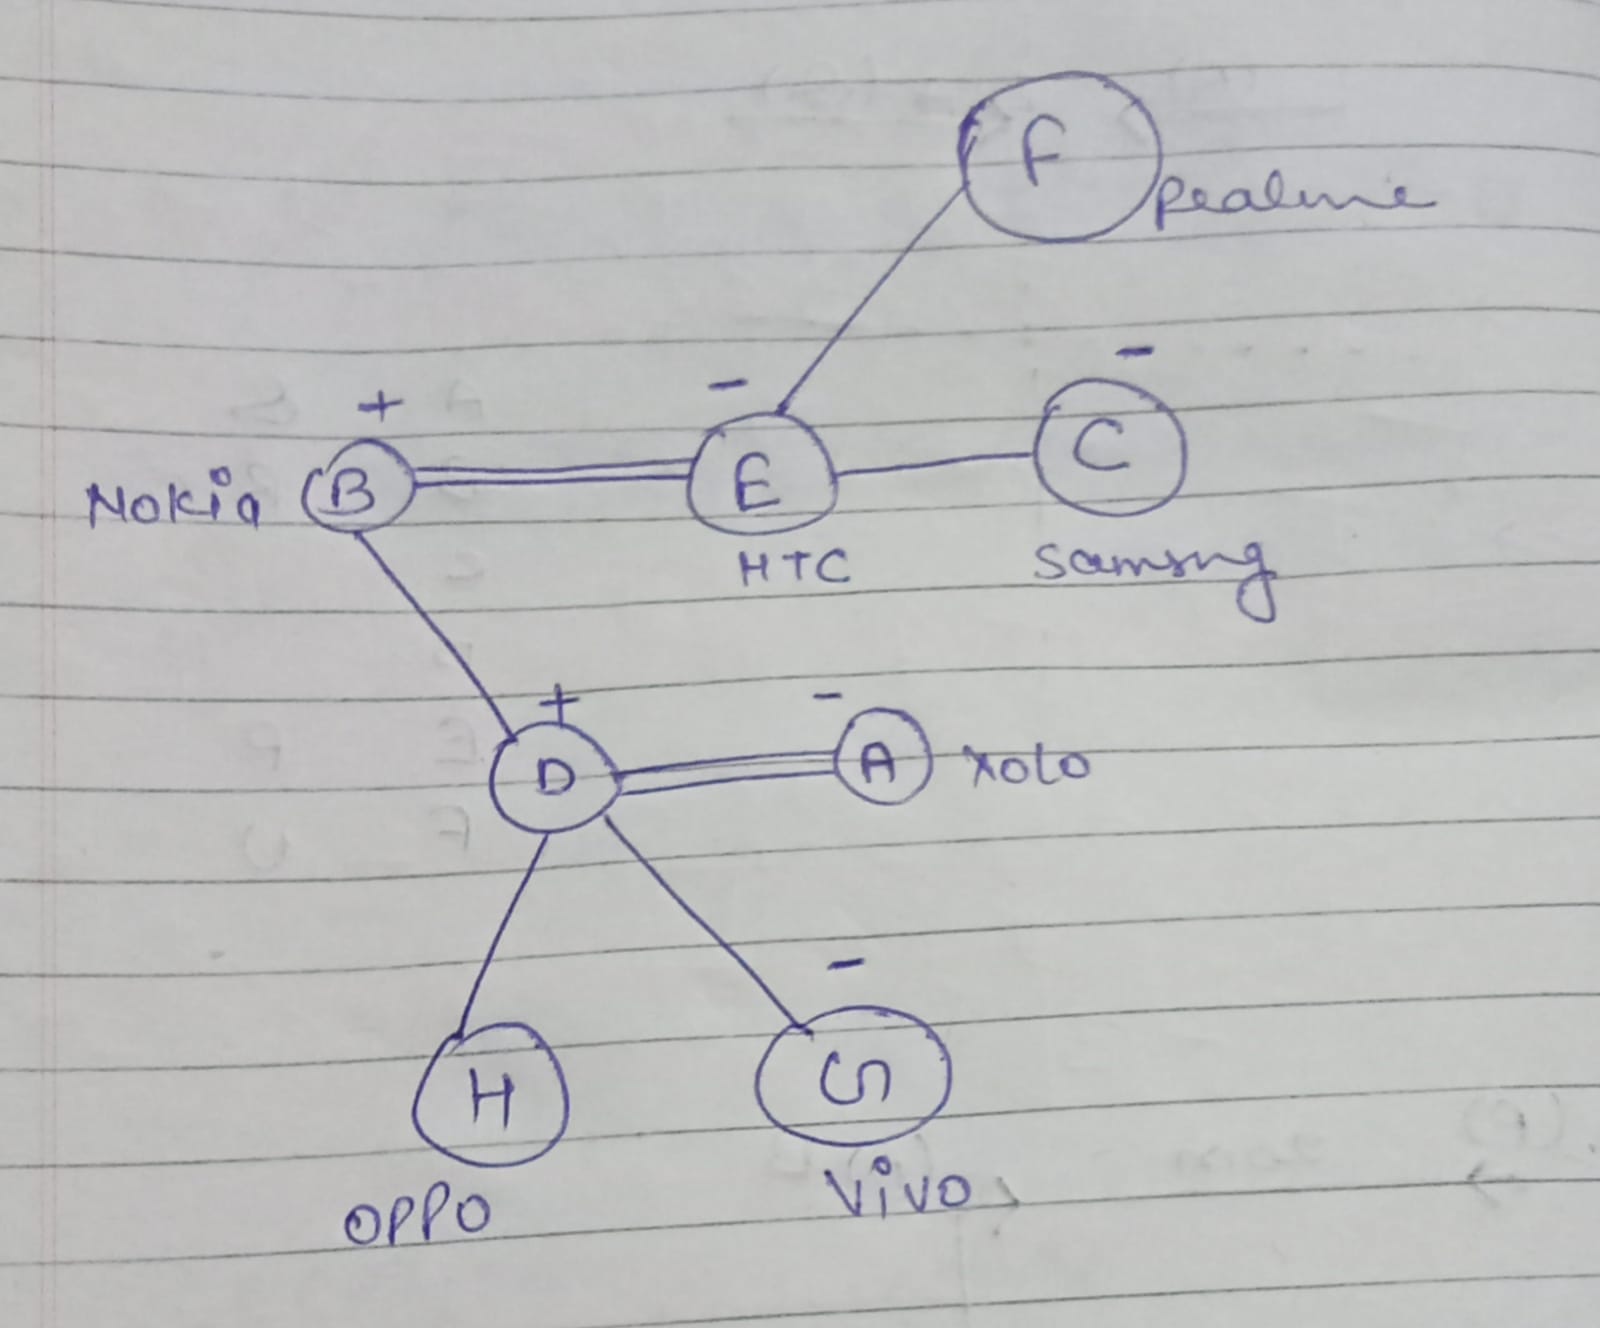 F
Realme
+ - -
Nokia B E C
HTC Samsng
+ -
D A xolo
-
H G
OPPO Vivo